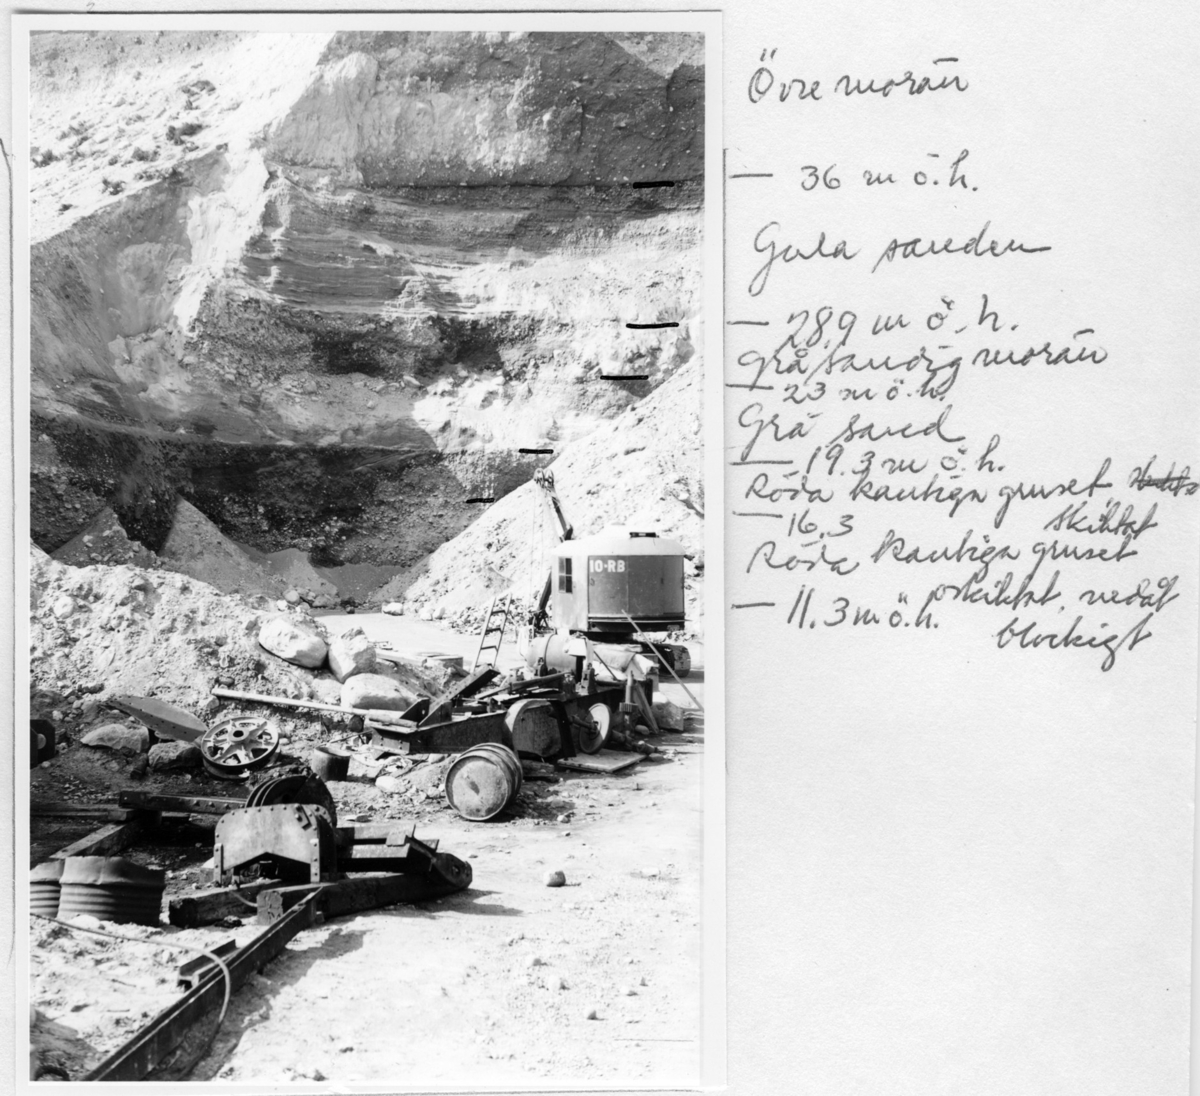 Övre morän
— 36 m ö.h.
Gula sanden
— 28,9 m ö.h.
Grå sandig morän
— 23 m ö.h.
Grå sand
— 19.3 m ö.h.
Röda kantiga gruset
skiktat
— 16,3
Röda kantiga gruset
oskiktat, nedåt
— 11.3 m ö.h.
blockigt
10-RB